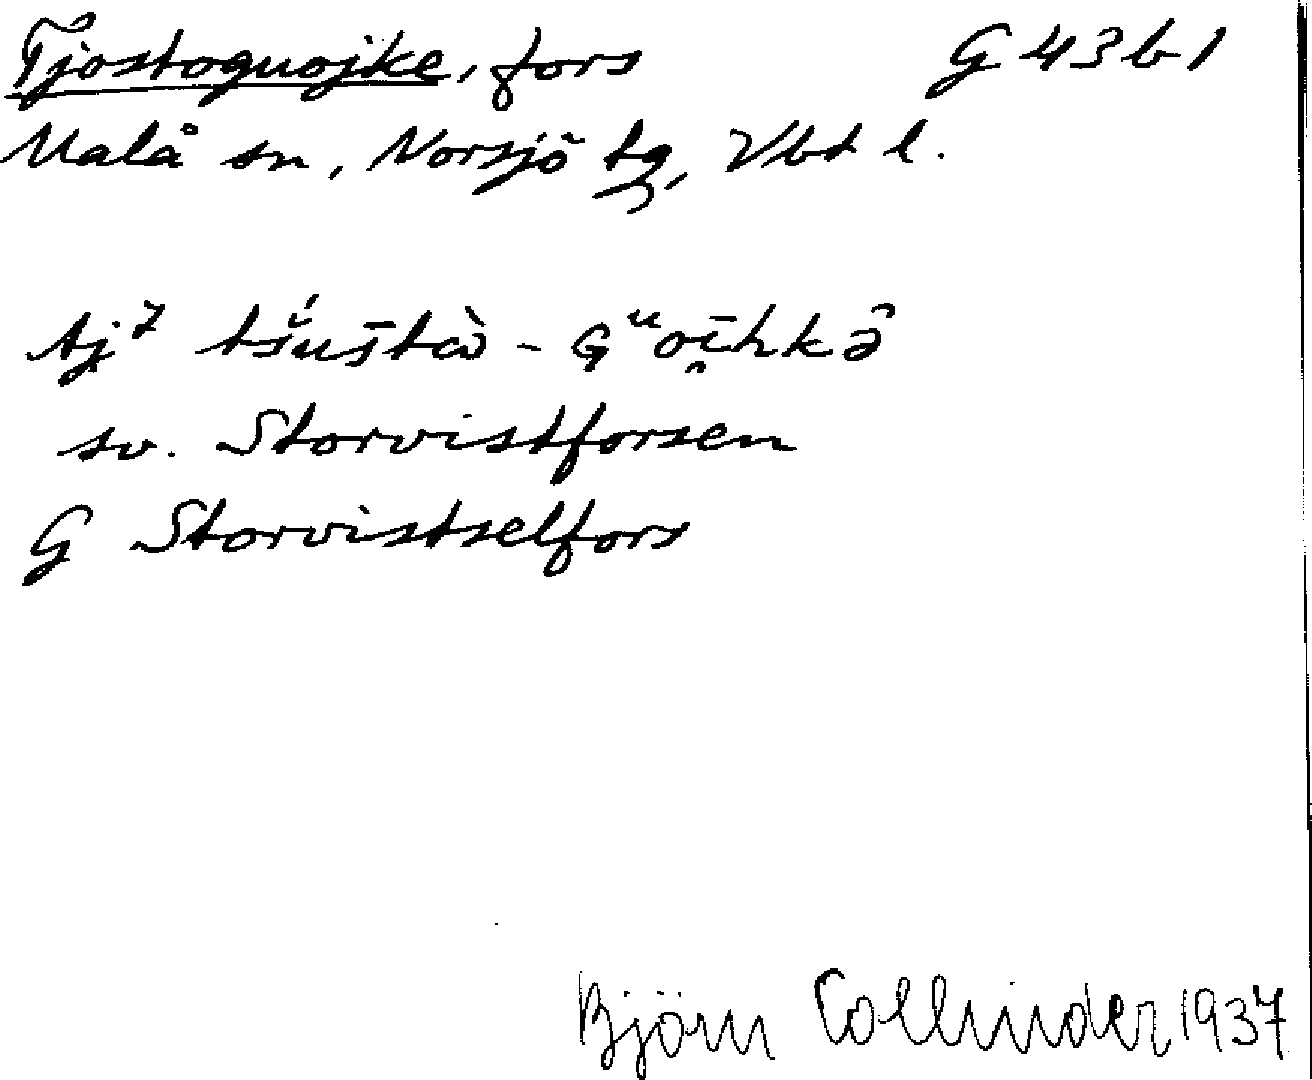 Tjostoguojke, fors G 43 b 1
Malå sn, Norsjö tg, Vbt l.
Aj⁷ tš́uš̄tὰ - Gᵘoī̯hkə̂
sv. Storvistforsen
G Storvistselfors
Björn Collinder 1937